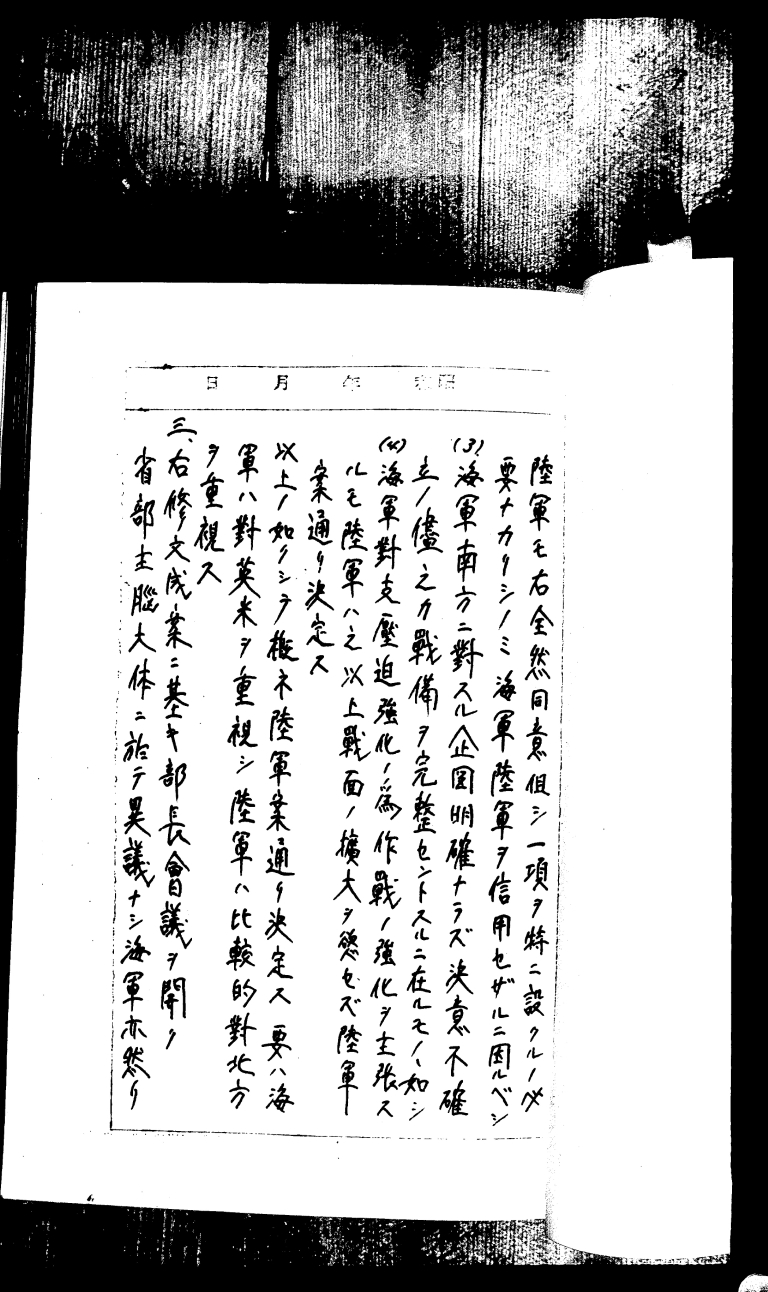 昭和 年 月 日
陸軍モ右全然同意但シ一項ヲ特ニ設クルノ必
要ナカリシノミ 海軍陸軍ヲ信用セザルニ因ルベシ
(3)海軍南方ニ對スル企図明確ナラズ決意不確
立ノ儘之カ戰備ヲ完整セントスルニ在ルモノノ如シ
(4)海軍對支壓迫強化ノ為作戰ノ強化ヲ主張ス
ルモ陸軍ハ之以上戰面ノ擴大ヲ慾セズ陸軍
案通リ決定ス
以上ノ如クシテ概ネ陸軍案通リ決定ス 要ハ海
軍ハ對英米ヲ重視シ陸軍ハ比較的對北方
ヲ重視ス
三、右修文成案ニ基キ部長會議ヲ開ク
省部主脳大体ニ於テ異議ナシ海軍亦然リ